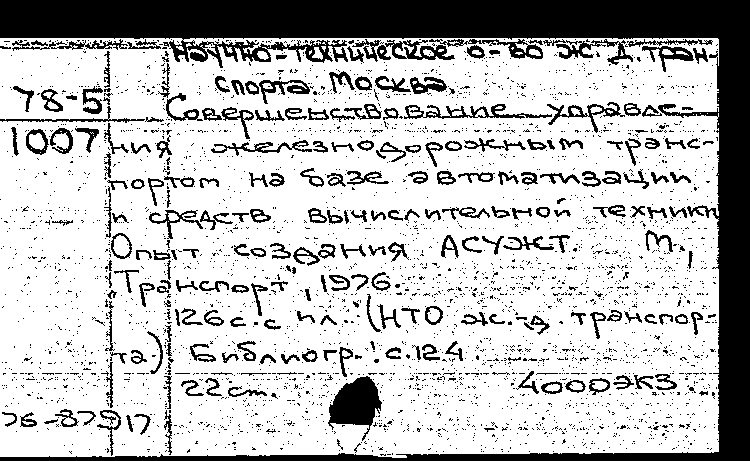 Научно-техническое о-во ж. д. тран-
спорта. Москва.
78-5
Совершенствование управле-
1007
ния железнодорожным транс-
портом на базе автоматизации
и средств вычислительной техники
Опыт создания АСУЖТ. М.,
"Транспорт", 1976.
126 с. с ил. (НТО ж.-д. транспор-
та) Библиогр.: с. 124.
22 см. 4000 экз.
76-87917